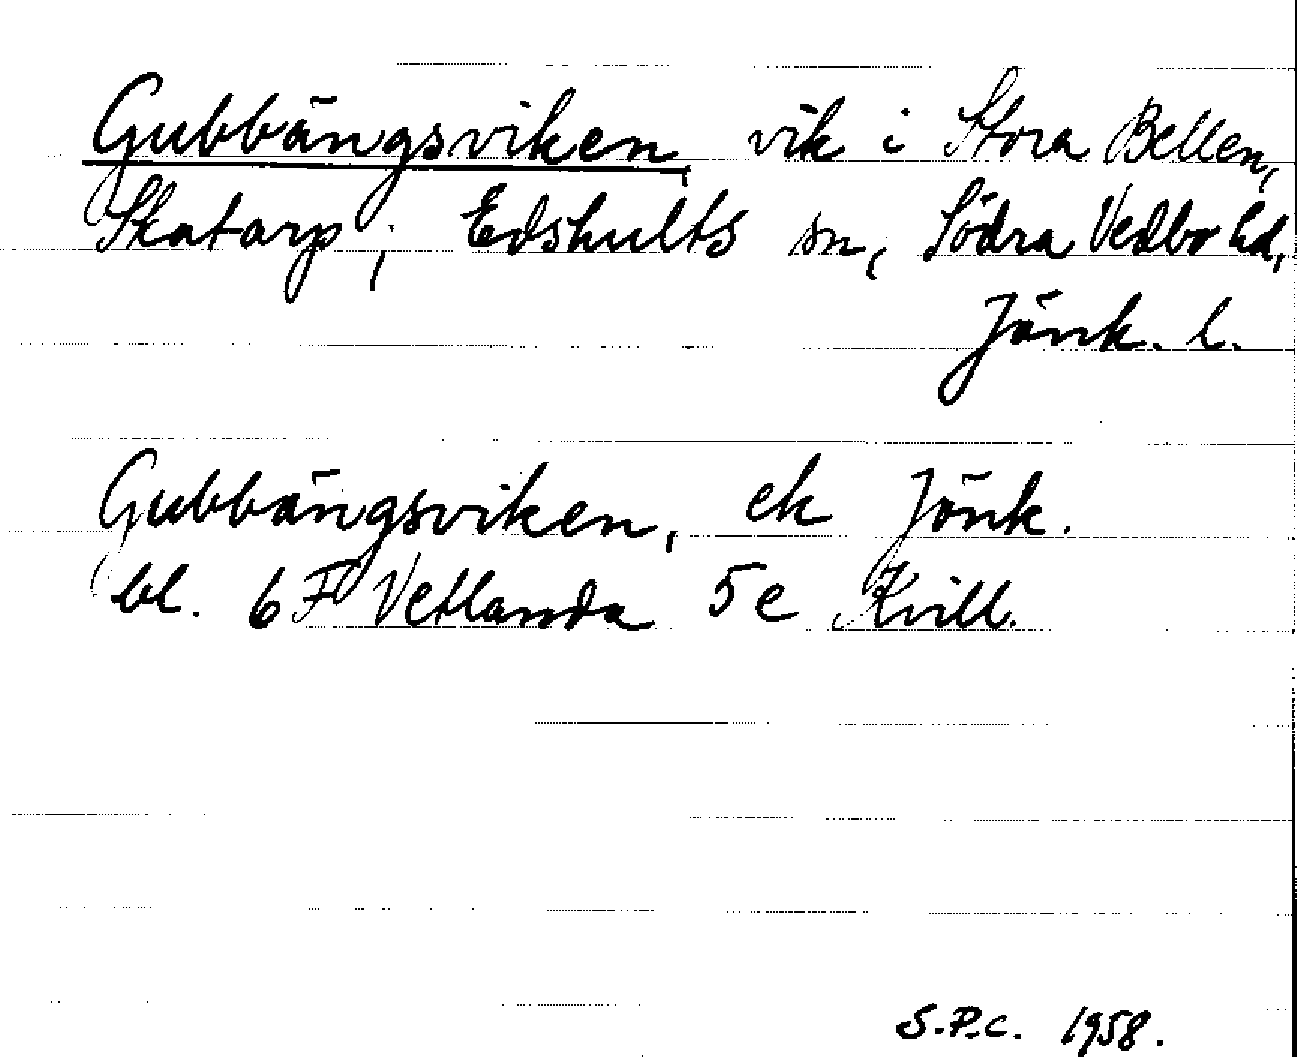 Gubbängsviken, vik i Stora Bellen,
Skatarp; Edshults sn, Södra Vedbo hd,
Jönk. l.
Gubbängsviken, ek Jönk.
bl. 6 F Vetlanda 5 e Kvill.
S.P.C. 1958.